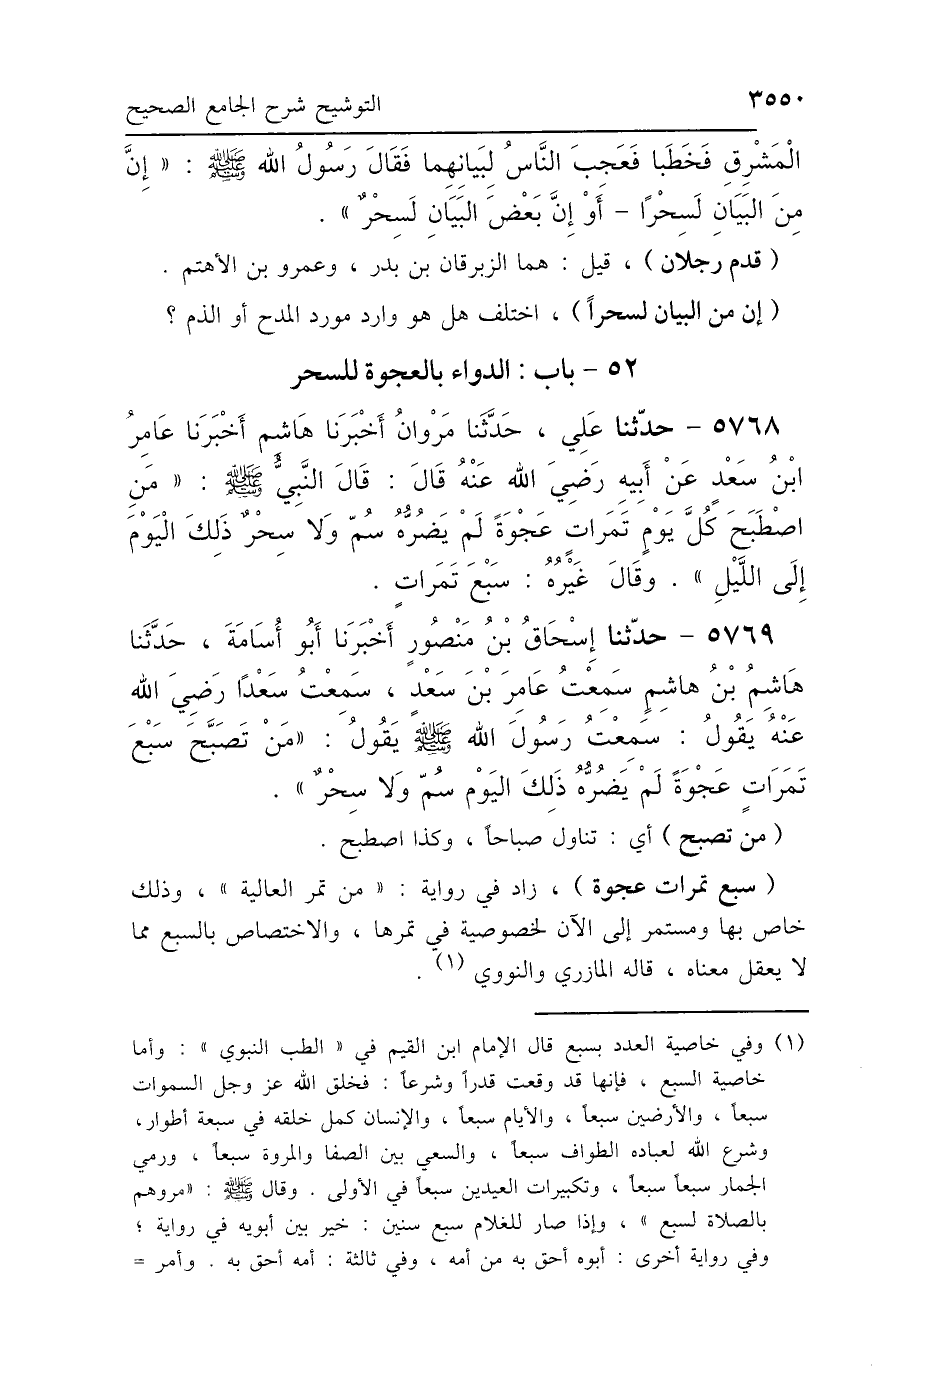 ٣٥٥٠ التوشيح شرح الجامع الصحيح
الْمَشْرِقِ فَخَطَبا فَعَجِبَ النَّاسُ لِبَيَانِهِما فَقَالَ رَسُولُ الله ﷺ : « إِنَّ
مِنَ البَيَانِ لَسِحْرًا – أَوْ إِنَّ بَعْضَ البَيَانِ لَسِحْرٌ » .
( قدم رجلان ) ، قيل : هما الزبرقان بن بدر ، وعمرو بن الأهتم .
( إن من البيان لسحراً ) ، اختلف هل هو وارد مورد المدح أو الذم ؟
٥٢ – باب : الدواء بالعجوة للسحر
٥٧٦٨ – حدّثنا عَلِي ، حَدَّثَنا مَرْوانُ أَخْبَرَنا هَاشِمٍ أَخْبَرَنا عَامِرُ
ابْنُ سَعْدٍ عَنْ أَبِيهِ رَضِيَ الله عَنْهُ قَالَ : قَالَ النَّبِيُّ ﷺ : « مَنِ
اصْطَبَحَ كُلَّ يَوْمٍ تَمَراتٍ عَجْوَةً لَمْ يَضُرُّهُ سُمّ وَلا سِحْرٌ ذَلِكَ الْيَوْمَ
إِلَى اللَّيْلِ » . وقَالَ غَيْرُهُ : سَبْعَ تَمَرَاتٍ .
٥٧٦٩ – حدّثنا إِسْحَاقُ بْنُ مَنْصُورٍ أَخْبَرَنا أَبُو أُسَامَةَ ، حَدَّثَنا
هَاشِمُ بْنُ هاشِمٍ سَمِعْتُ عَامِرَ بْنَ سَعْدٍ ، سَمِعْتُ سَعْدًا رَضِيَ الله
عَنْهُ يَقُولُ : سَمِعْتُ رَسُولَ الله ﷺ يَقُولُ : «مَنْ تَصَبَّحَ سَبْعَ
تَمَرَاتٍ عَجْوَةً لَمْ يَضُرُّهُ ذَلِكَ اليَوْمَ سُمّ وَلا سِحْرٌ » .
( من تصبح ) أي : تناول صباحاً ، وكذا اصطبح .
( سبع تمرات عجوة ) ، زاد في رواية : « من تمر العالية » ، وذلك
خاص بها ومستمر إلى الآن لخصوصية في تمرها ، والاختصاص بالسبع مما
لا يعقل معناه ، قاله المازري والنووي (١) .
(١) وفي خاصية العدد بسبع قال الإمام ابن القيم في « الطب النبوي » : وأما
خاصية السبع ، فإنها قد وقعت قدراً وشرعاً : فخلق الله عز وجل السموات
سبعاً ، والأرضين سبعاً ، والأيام سبعاً ، والإنسان كمل خلقه في سبعة أطوار،
وشرع الله لعباده الطواف سبعاً ، والسعي بين الصفا والمروة سبعاً ، ورمي
الجمار سبعاً سبعاً ، وتكبيرات العيدين سبعاً في الأولى . وقال ﷺ : «مروهم
بالصلاة لسبع » ، وإذا صار للغلام سبع سنين : خير بين أبويه في رواية ؛
وفي رواية أخرى : أبوه أحق به من أمه ، وفي ثالثة : أمه أحق به . وأمر =